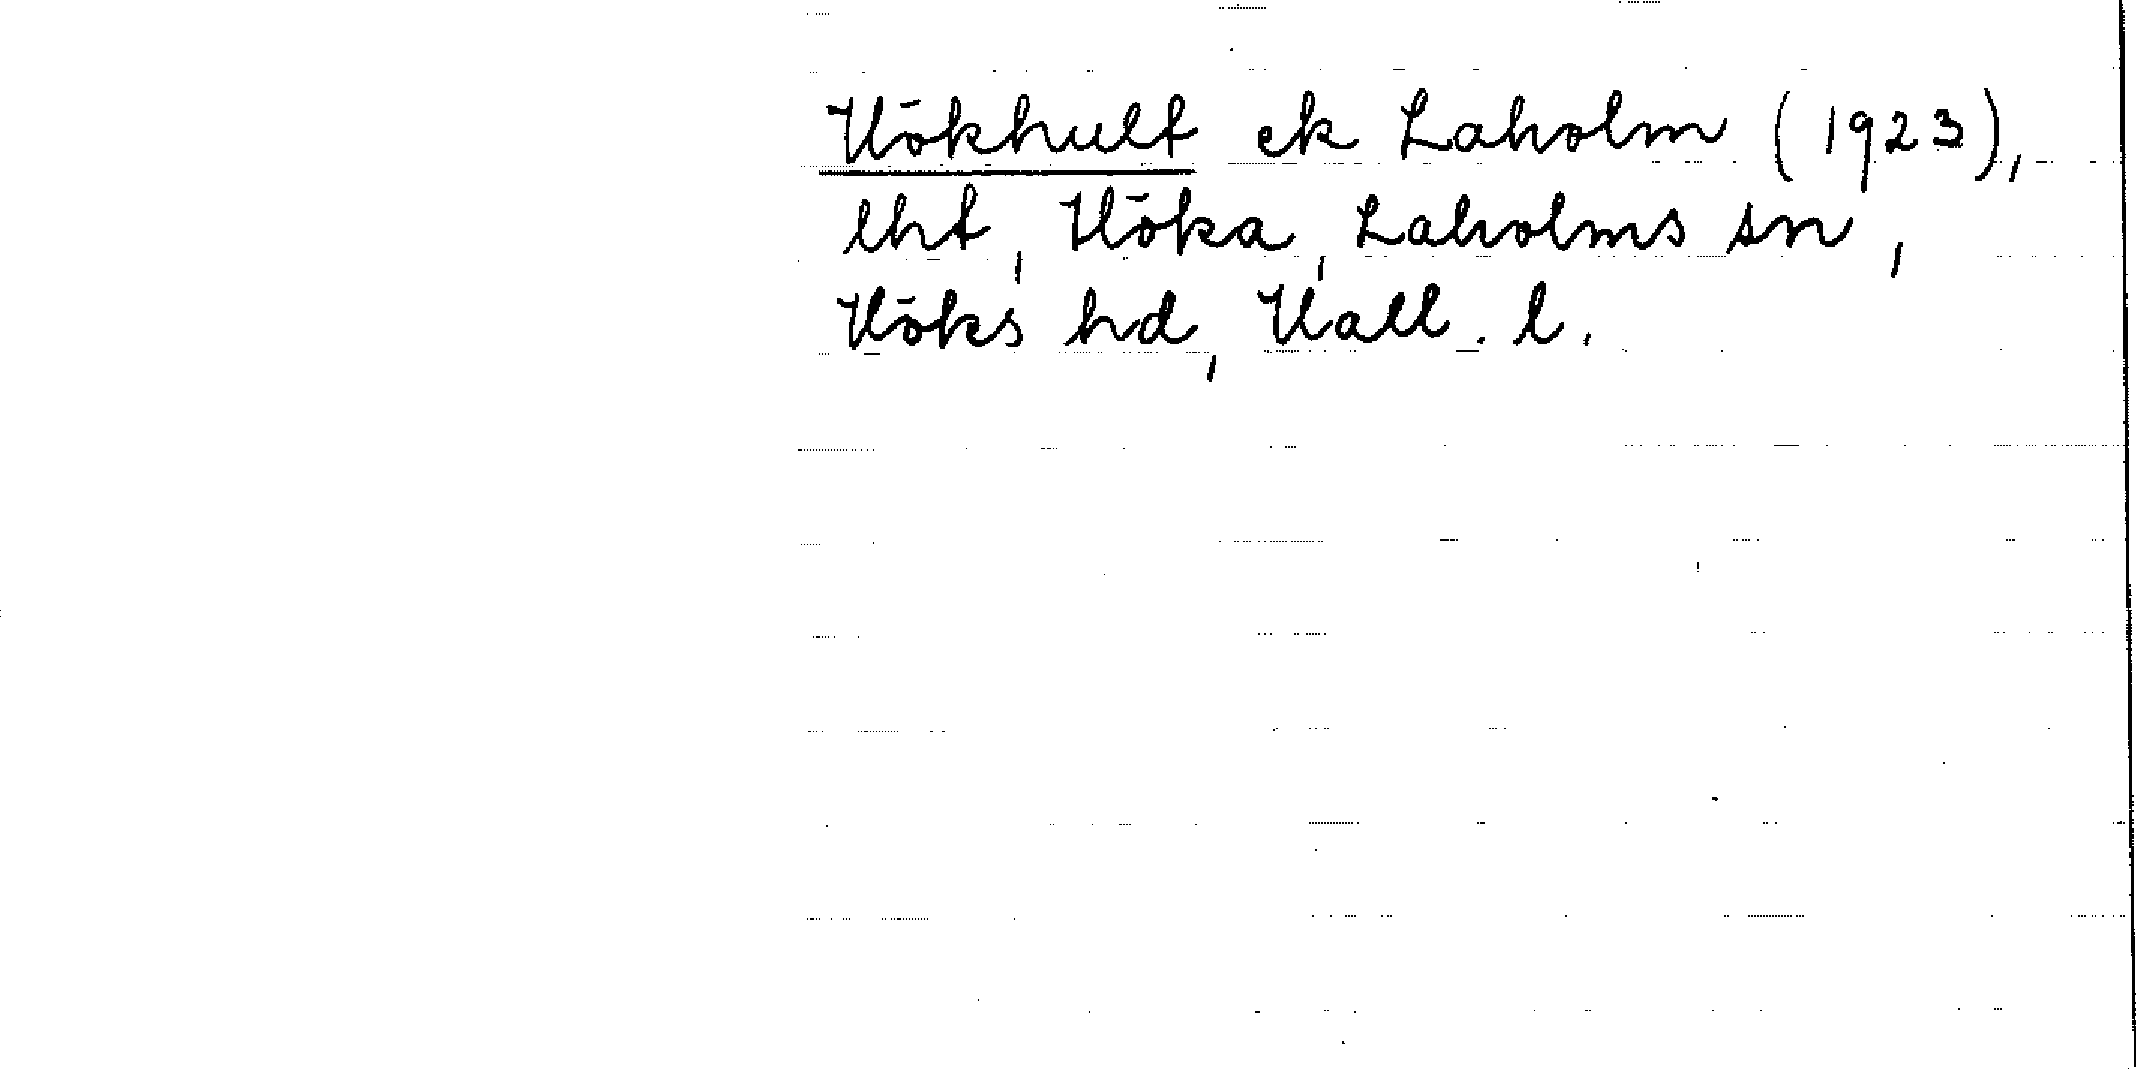 Hökhult ek Laholm (1923),
lht, Höka, Laholms sn,
Höks hd, Hall. l.